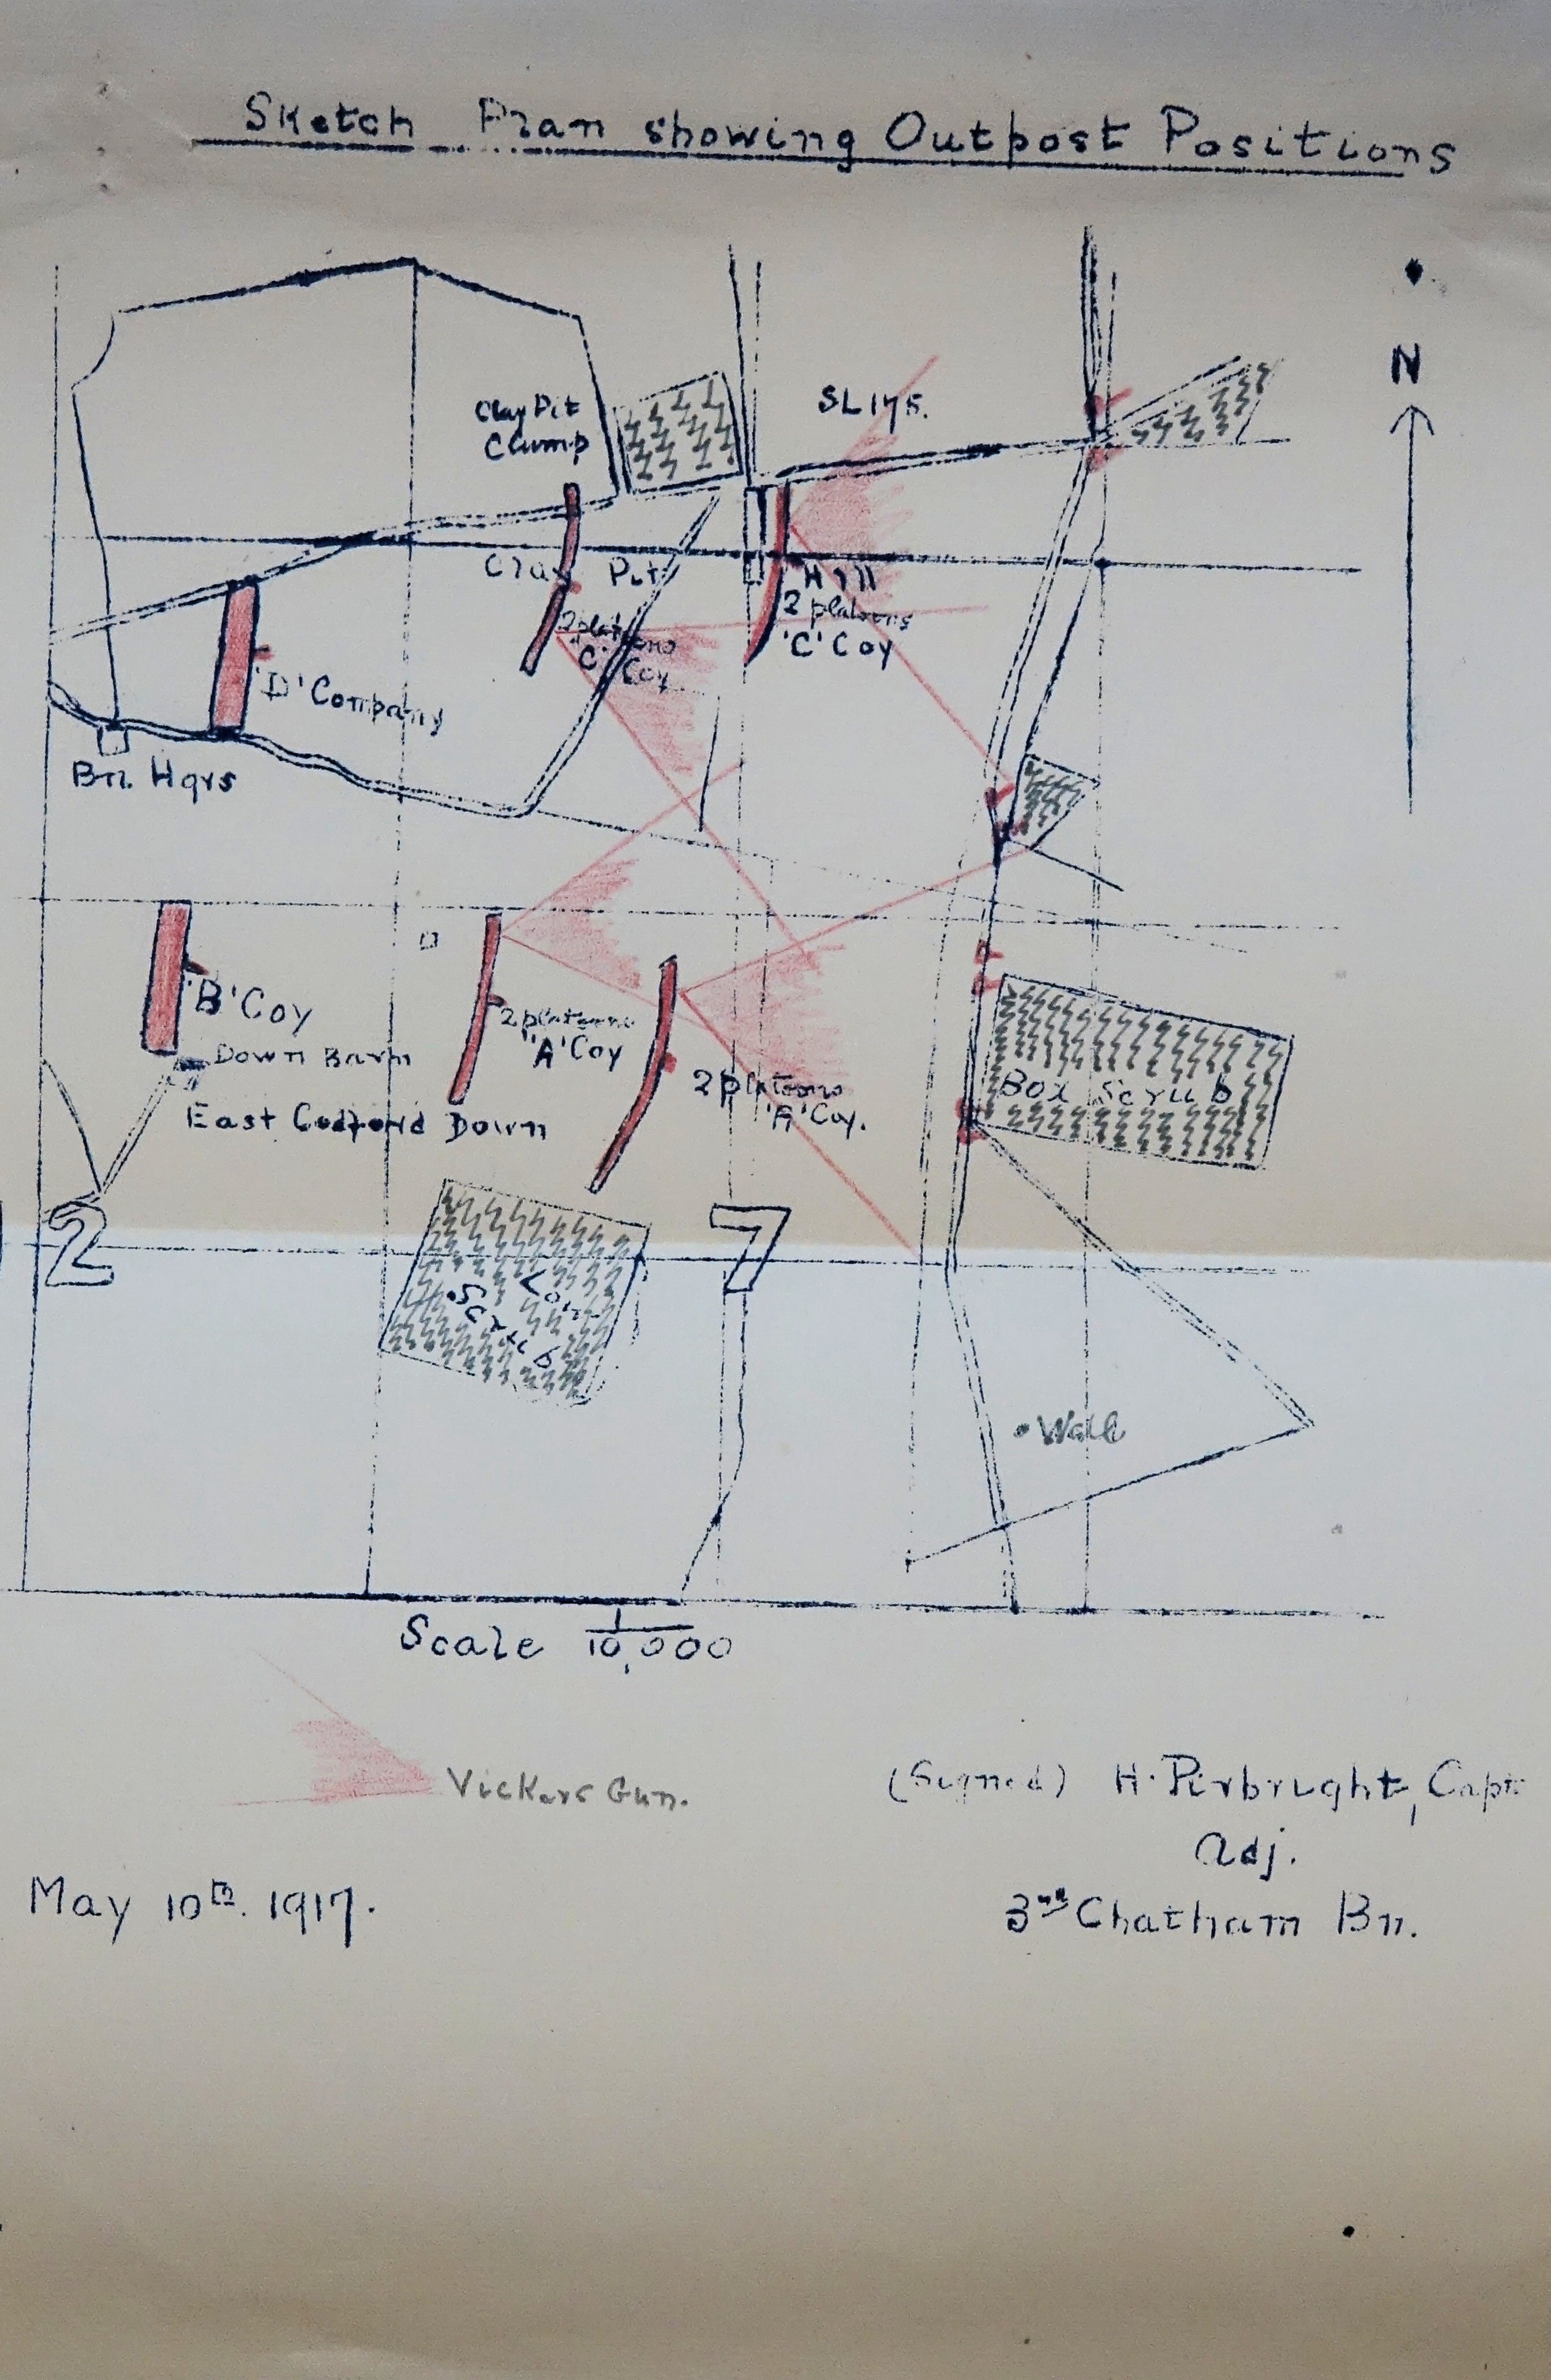 Sketch Plan showing Outpost Positions
N
Clay Pit
Clump
SL175.
Clay Pit Hill
2 platoons
'C' Coy
2 platoons
'C' Coy
'D' Company
Bn. Hqrs
'B' Coy
Down Barn
2 platoons
'A' Coy
2 platoons
'A' Coy.
East Codford Down
Box Scrub
2
7
Scrub
Well
Scale 1/10,000
Vickers Gun.
(Signed) H. Pirbright, Capt.
Adj.
3rd Chatham Bn.
May 10th. 1917.